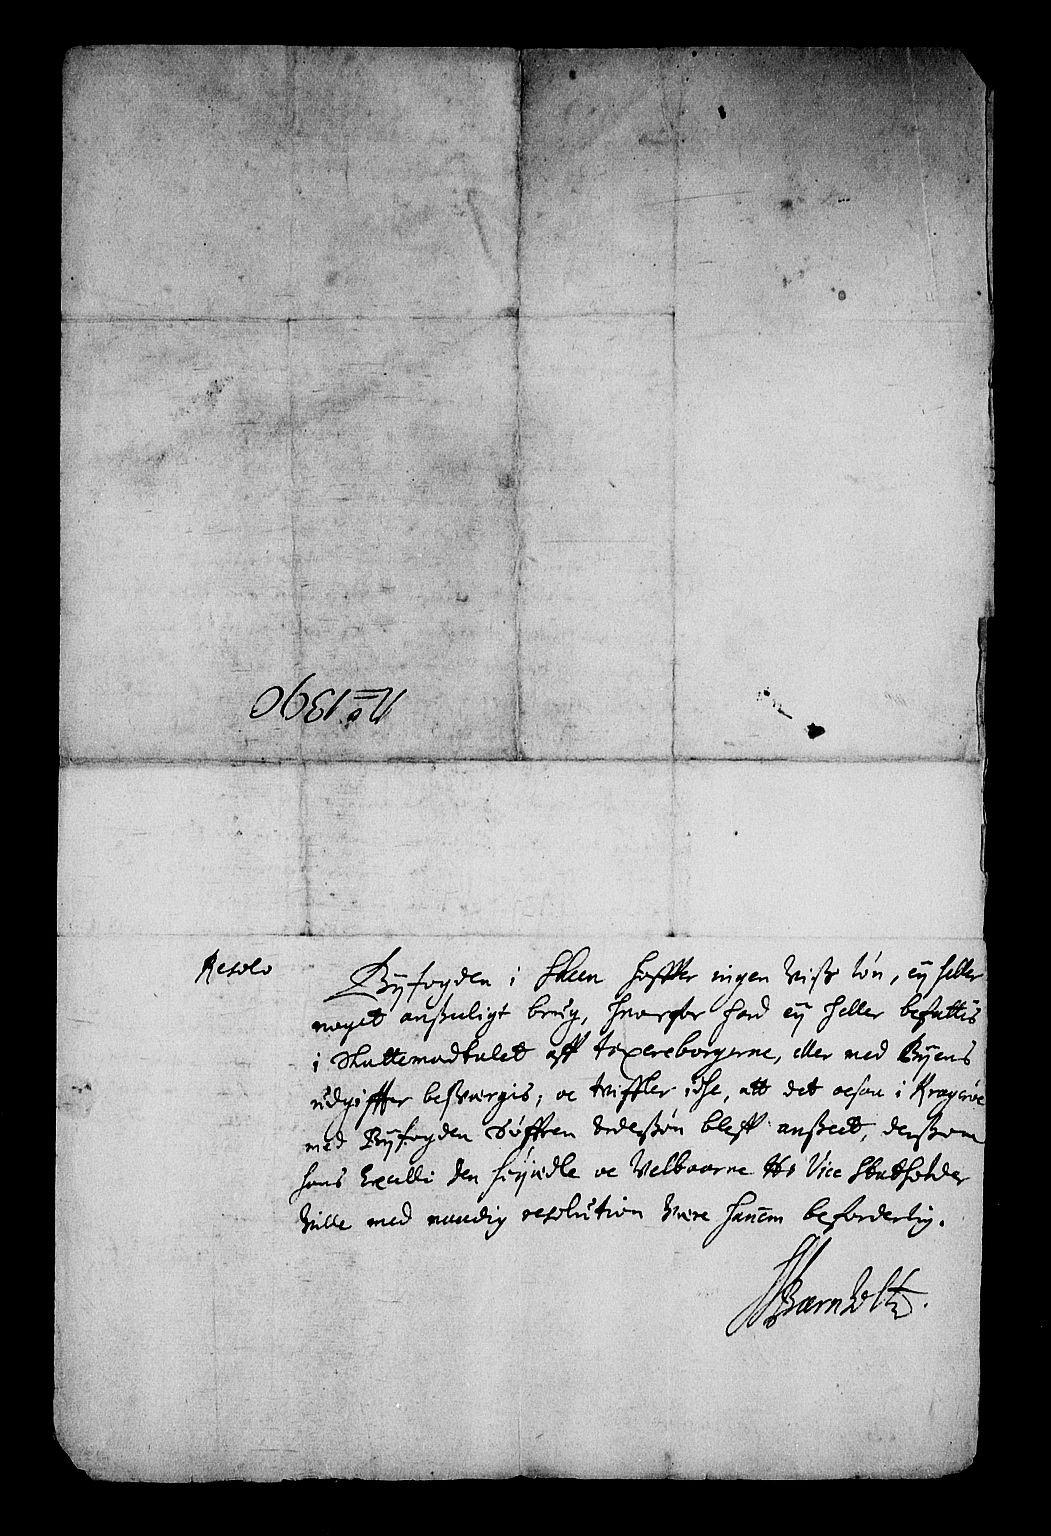 No 1390
Resolo
Byfogden i Skeen haffver ingen viss løn, ey heller
noget anseuligt brug, hvorfor hand ey heller befattis
i Skattemandtalet aff taxereborgerne, eller med Byens
udgiffter besværgis; oc tviffler icke, att det ocsaa i Kragerøe
med Byfogden Søffren Anderssøn bleff anseet, dersom
hans Excelli den höyædle oc Velbaarne Hr Vice Statholder
ville med naadig resolution være hannem beforderlig.